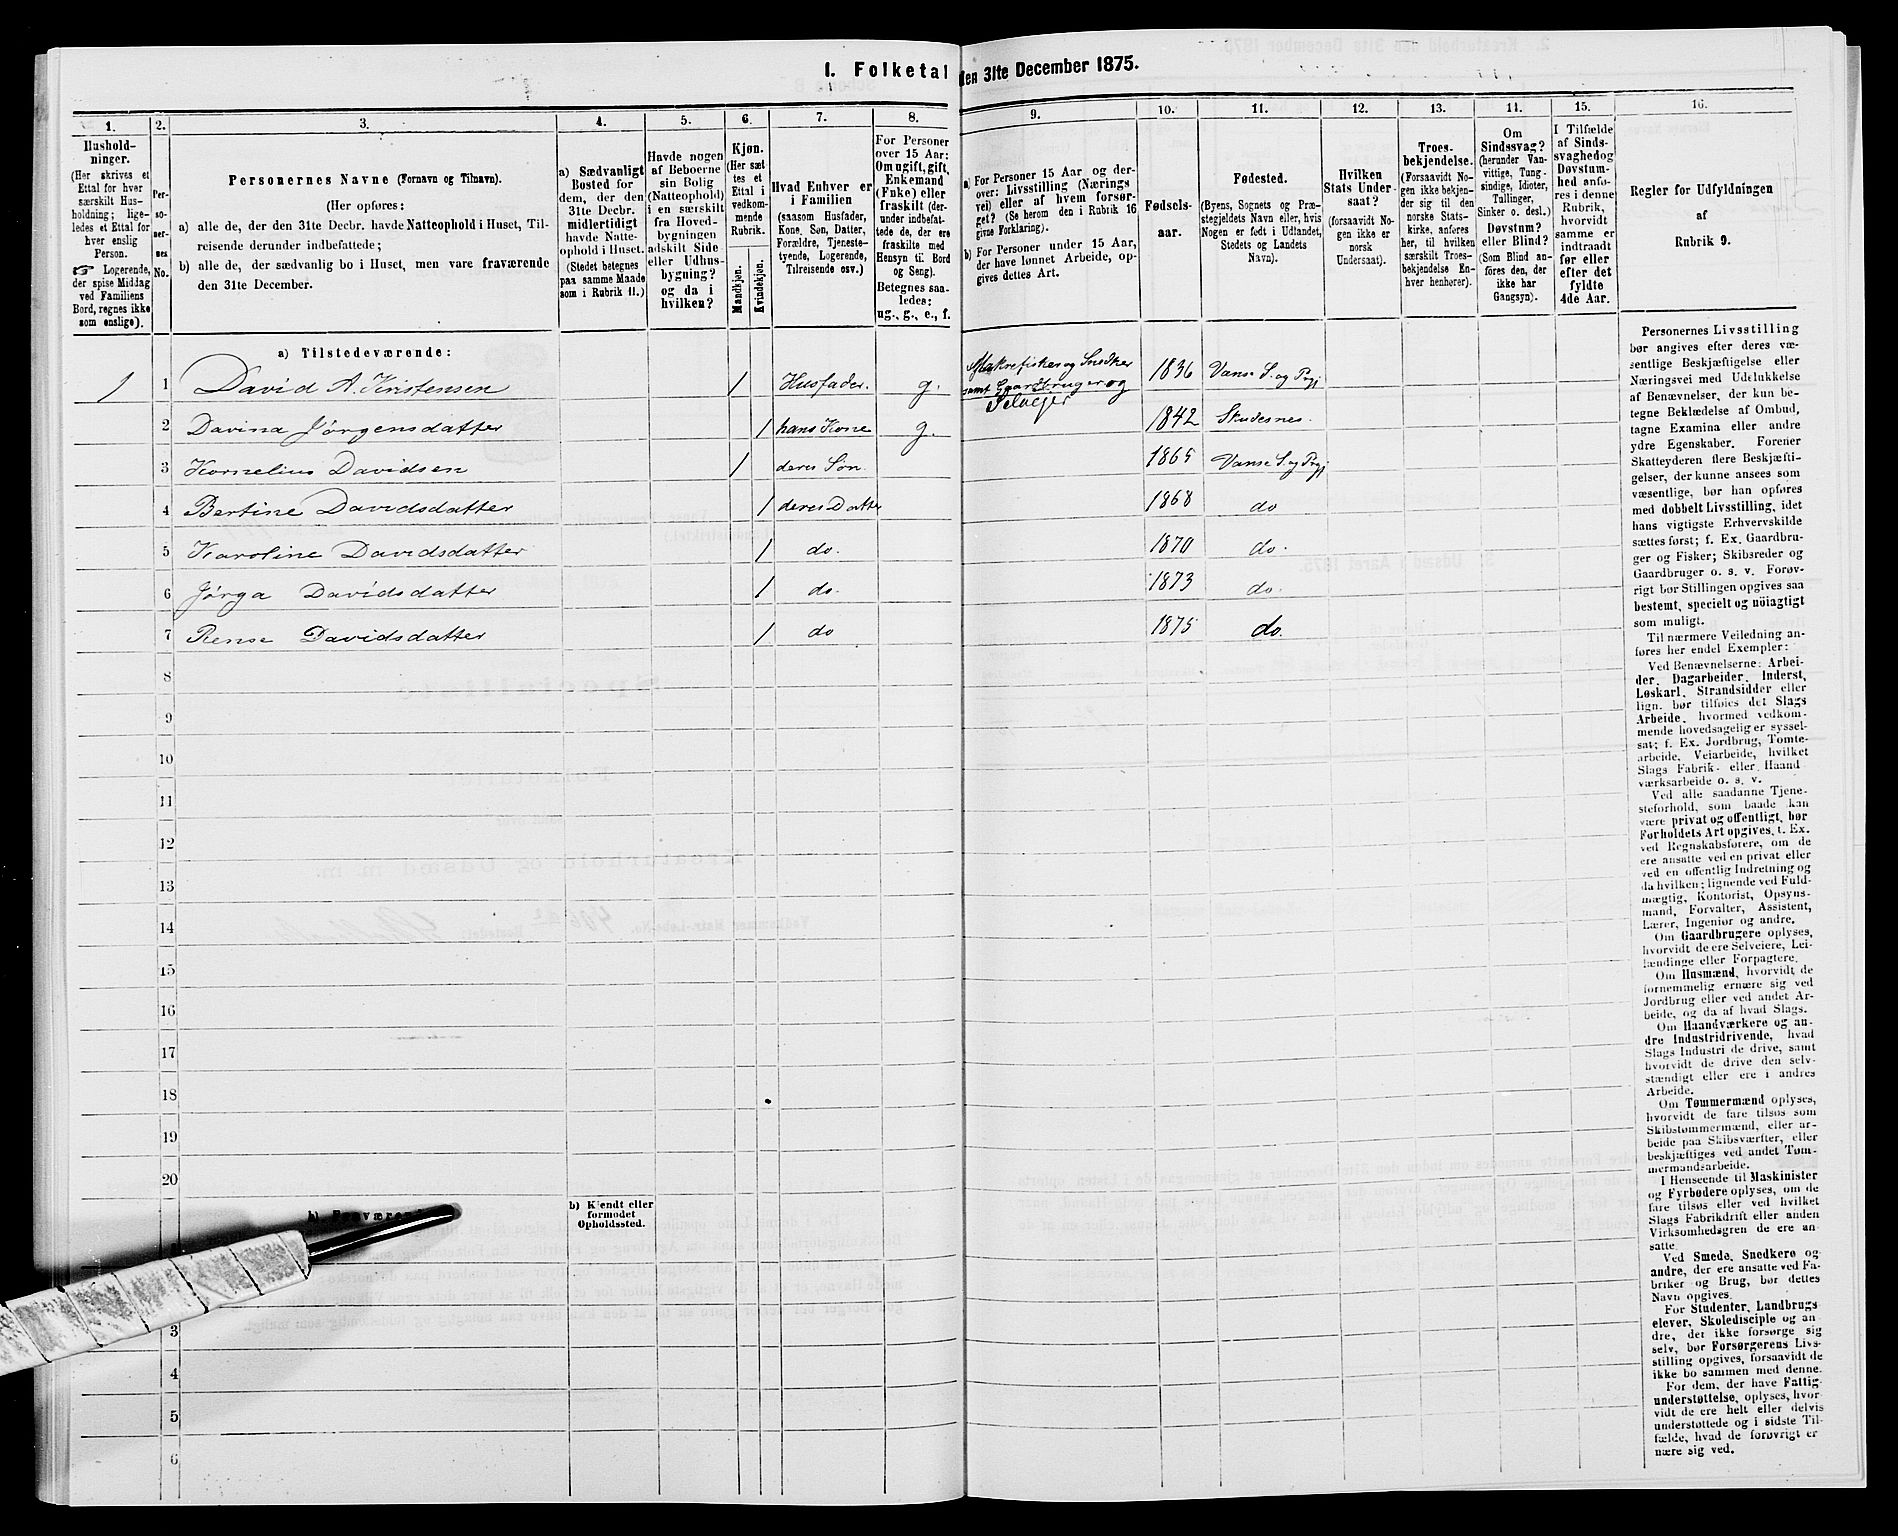 1. Folketal den 31te December 1875.
1.
Hushold-
ninger.
(Her skrives et
Ettal for hver
særskilt Hus-
holdning; lige-
ledes et Ettal for
hver enslig
Person.
☞ Logerende,
der spise Middag
ved Familiens
Bord, regnes ikke
som enslige).
2.
Per-
so-
ner-
nes
No.
3.
Personernes Navne (Fornavn og Tilnavn).
(Her opføres:
a) alle de, der den 31te Decbr. havde Natteophold i Huset, Til-
reisende derunder indbefattede;
b) alle de, der sædvanlig bo i Huset, men vare fraværende
den 31te December.
4.
a) Sædvanligt
Bosted for
dem, der den
31te Decbr.
midlertidigt
havde Natte-
ophold i Huset.
(Stedet betegnes
paa samme Maade
som i Rubrik 11.)
5.
Havde nogen
af Beboerne
sin Bolig
(Natteophold)
i en særskilt
fra Hoved-
bygningen
adskilt Side-
eller Udhus-
bygning?
og da i
hvilken?
6.
Kjøn.
(Her sæt
tes et
Ettal i
vedkom-
mende
Rubrik.
Mandkjøn.
Kvindekjøn.
7.
Hvad Enhver er
i Familien
(saasom Husfader,
Kone, Søn, Datter,
Forældre, Tjeneste-
tyende, Logerende,
Tilreisende osv.)
8.
For Personer
over 15 Aar:
Om ugift, gift,
Enkemand
(Enke) eller
fraskilt (der-
under indbefat-
tede de, der ere
fraskilte med
Hensyn til Bord
og Seng).
Betegnes saa-
ledes:
ug., g., e., f.
9.
a) For Personer 15 Aar og der-
over: Livsstilling (Nærings
vei) eller af hvem forsør-
get? (Se herom den i Rubrik 16
givne Forklaring).
b) For Personer under 15 Aar,
der have lønnet Arbeide, op-
gives dettes Art.
10.
Fødsels-
aar.
11.
Fødested.
(Byens, Sognets og Præ-
stegjeldets Navn eller, hvis
Nogen er født i Udlandet,
Stedets og Landets
Navn).
12.
Hvilken
Stats Under-
saat?
(forsaavidt No-
gen ikke er
norsk
Undersaat).
13.
Troes-
bekjendelse.
(Forsaavidt No-
gen ikke bekjen-
der sig til den
norske Stats-
kirke, anføres
her, til hvilken
særskilt Troes-
bekjendelse En-
hver henhører).
11.
Om
Sindssvag?
(herunder Van-
vittige, Tung-
sindige, Idioter,
Tullinger,
Sinker o. desl.)
Døvstum?
eller Blind?
(Som Blind an-
føres den, der
ikke har
Gangsyn).
15.
I Tilfælde
af Sinds-
svaghed og
Døvstum-
hed anfø-
res i denne
Rubrik,
hvorvidt
samme er
indtraadt
før eller
efter det
fyldte
4de Aar.
16.
Regler for Udfyldningen
af
Rubrik 9.
a) Tilstedeværende:
1 1 David A. Kristensen 1 Husfader. g. Makrefisker og Snedker samt Gaardbruger og Selvejer 1836 Vanse S. og Prgj
2 Davina Jørgensdatter 1 hans Kone g. 1842 Skudesnes.
3 Kornelius Davidsen 1 deres Søn. 1865 Vanse S. og Prgj
4 Bertine Davidsdatter 1 deres Datter 1868 do
5 Karoline Davidsdatter 1 do. 1870 do.
6 Jørga Davidsdatter 1 do. 1873 do.
7 Rense Davidsdatter 1 do 1875 do.
8
9
10
11
12
13
14
15
16
17
18
19
20
b) Fraværende
b) Kjendt eller
formodet
Opholdssted.
3
4
5
6
Personernes Livsstilling
bør angives efter deres væ-
sentlige Beskjæftigelse eller
Næringsvei med Udelukkelse
af Benævnelser, der kun be-
tegne Beklædelse af Ombud,
tagne Examina eller andre
ydre Egenskaber. Forener
Skatteyderen flere Beskjæfti-
gelser, der kunne ansees som
væsentlige, bør han opføres
med dobbelt Livsstilling, idet
hans vigtigste Erhvervskilde
sættes først; f. Ex. Gaardbru-
ger og Fisker; Skibsreder og
Gaardbruger o. s. v. Forøv-
rigt bør Stillingen opgives saa
bestemt, specielt og nøiagtigt
som muligt.
Til nærmere Veiledning an-
føres her endel Exempler:
Ved Benævnelserne: Arbei-
der, Dagarbeider, Inderst,
Løskarl, Strandsidder eller
lign. bør tilføies det Slags
Arbeide, hvormed vedkom-
mende hovedsagelig er syssel-
sat; f. Ex. Jordbrug, Tomte-
arbeide, Veiarbeide, hvilket
Slags Fabrik- eller Haand
værksarbeide o. s. v.
Ved alle saadanne Tjene-
steforhold, som baade kan
være privat og offentligt, bør
Forholdets Art opgives, t. Ex.
ved Regnskabsførere, om de
ere ansatte ved en privat eller
ved en offentlig Indretning og
da hvilken; lignende ved Fuld-
mægtig, Kontorist, Opsyns-
mand, Forvalter, Assistent,
Lærer, Ingeniør og andre.
Om Gaardbrugere oplyses,
hvorvidt de ere Selveiere, Lei-
lændinge eller Forpagtere.
Om Husmænd, hvorvidt de
fornemmelig ernære sig ved
Jordbrug eller ved andet Ar-
beide, og da af hvad Slags.
Om Haandværkere og an-
dre Industridrivende, hvad
Slags Industri de drive, samt
hvorvidt de drive den selv-
stændigt eller ere i andres
Arbeide.
Om Tømmermænd oplyses,
hvorvidt de fare tilsøs som
Skibstømmermænd, eller ar-
beide paa Skibsværfter, eller
beskjæftiges ved andet Tøm-
mermandsarbeide.
I Henseende til Maskinister
og Fyrbødere oplyses, om de
fare tilsøs eller ved hvilket
Slags Fabrikdrift eller anden
Virksomhedsgren de ere an-
satte.
Ved Smede, Snedkere og
andre, der ere ansatte ved Fa-
briker og Brug, bør dettes
Navn opgives.
For Studenter, Landbrugs
elever, Skoledisciple og an-
dre, det ikke forsørge sig
selv, bør Forsørgerens Livs-
stilling opgives, forsaavidt de
ikke bo sammen med denne.
For dem, der have Fattig-
understøttelse, oplyses, hvor-
vidt de ere helt eller delvis
understøttede og i sidste Til-
fælde, hvad de forøvrigt er
nære sig ved.